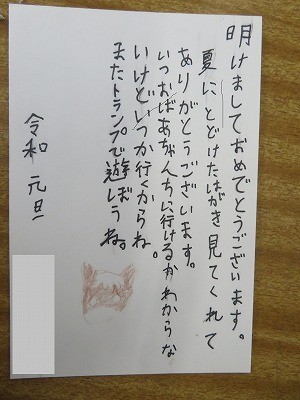 明けましておめでとうございます。
夏にとどけたはがき見てくれて
ありがとうございます。
いつおばあちゃんちに行けるかわからな
いけどいつか行くからね。
またトランプで遊ぼうね。
令和 元旦